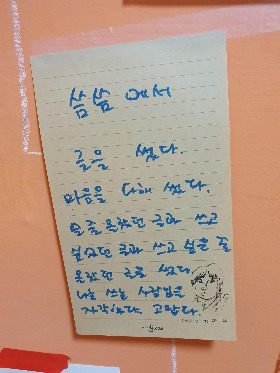 씀씀에서
글을 썼다.
마음을 다해 썼다.
모를 줄 몰랐던 글과 쓰고
싶었던 글과 쓰고 싶은 줄
몰랐던 글을 썼다.
나는 쓰는 사람임을
자각했다. 고맙다.